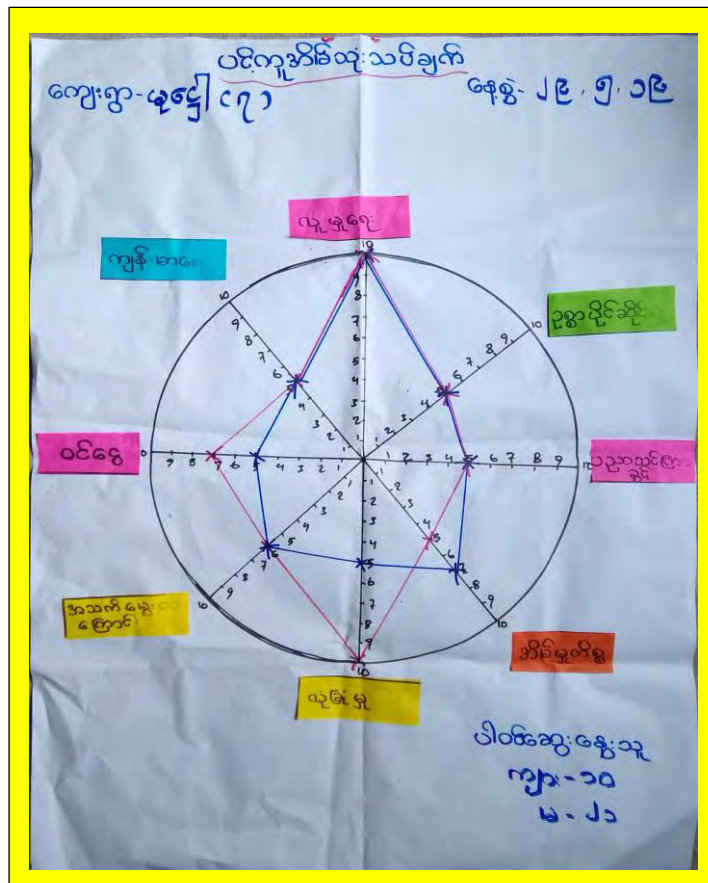 ပင့်ကူအိမ်သုံးသပ်ချက်
ကျေးရွာ- (၇)
နေ့စွဲ- ၂၉.၅.၁၉
လူမှုရေး
ကျန်းမာရေး
ဥစ္စာပိုင်ဆိုင်
ဝင်ငွေ
ပညာသင်ကြား
ခွင့်
အသက်မွေး
ကြောင်း
အိမ်မှုကိစ္စ
လုံခြုံမှု
ပါဝင်ဆွေးနွေးသူ
ကျား- ၁၀
မ - ၂၁